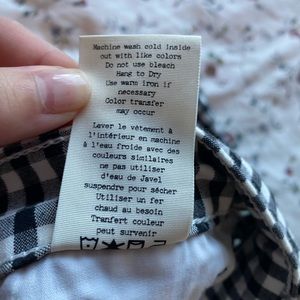 Machine wash cold inside
out with like colors
Do not use bleach
Hang to Dry
Use warm iron if
necessary
Color transfer
may occur
Laver le vêtement à
l'intérieur en machine
à l'eau froide avec des
couleurs similaires
ne pas utiliser
d'eau de Javel
suspendre pour sécher
Utiliser un fer
chaud au besoin
Tranfert couleur
peut survenir